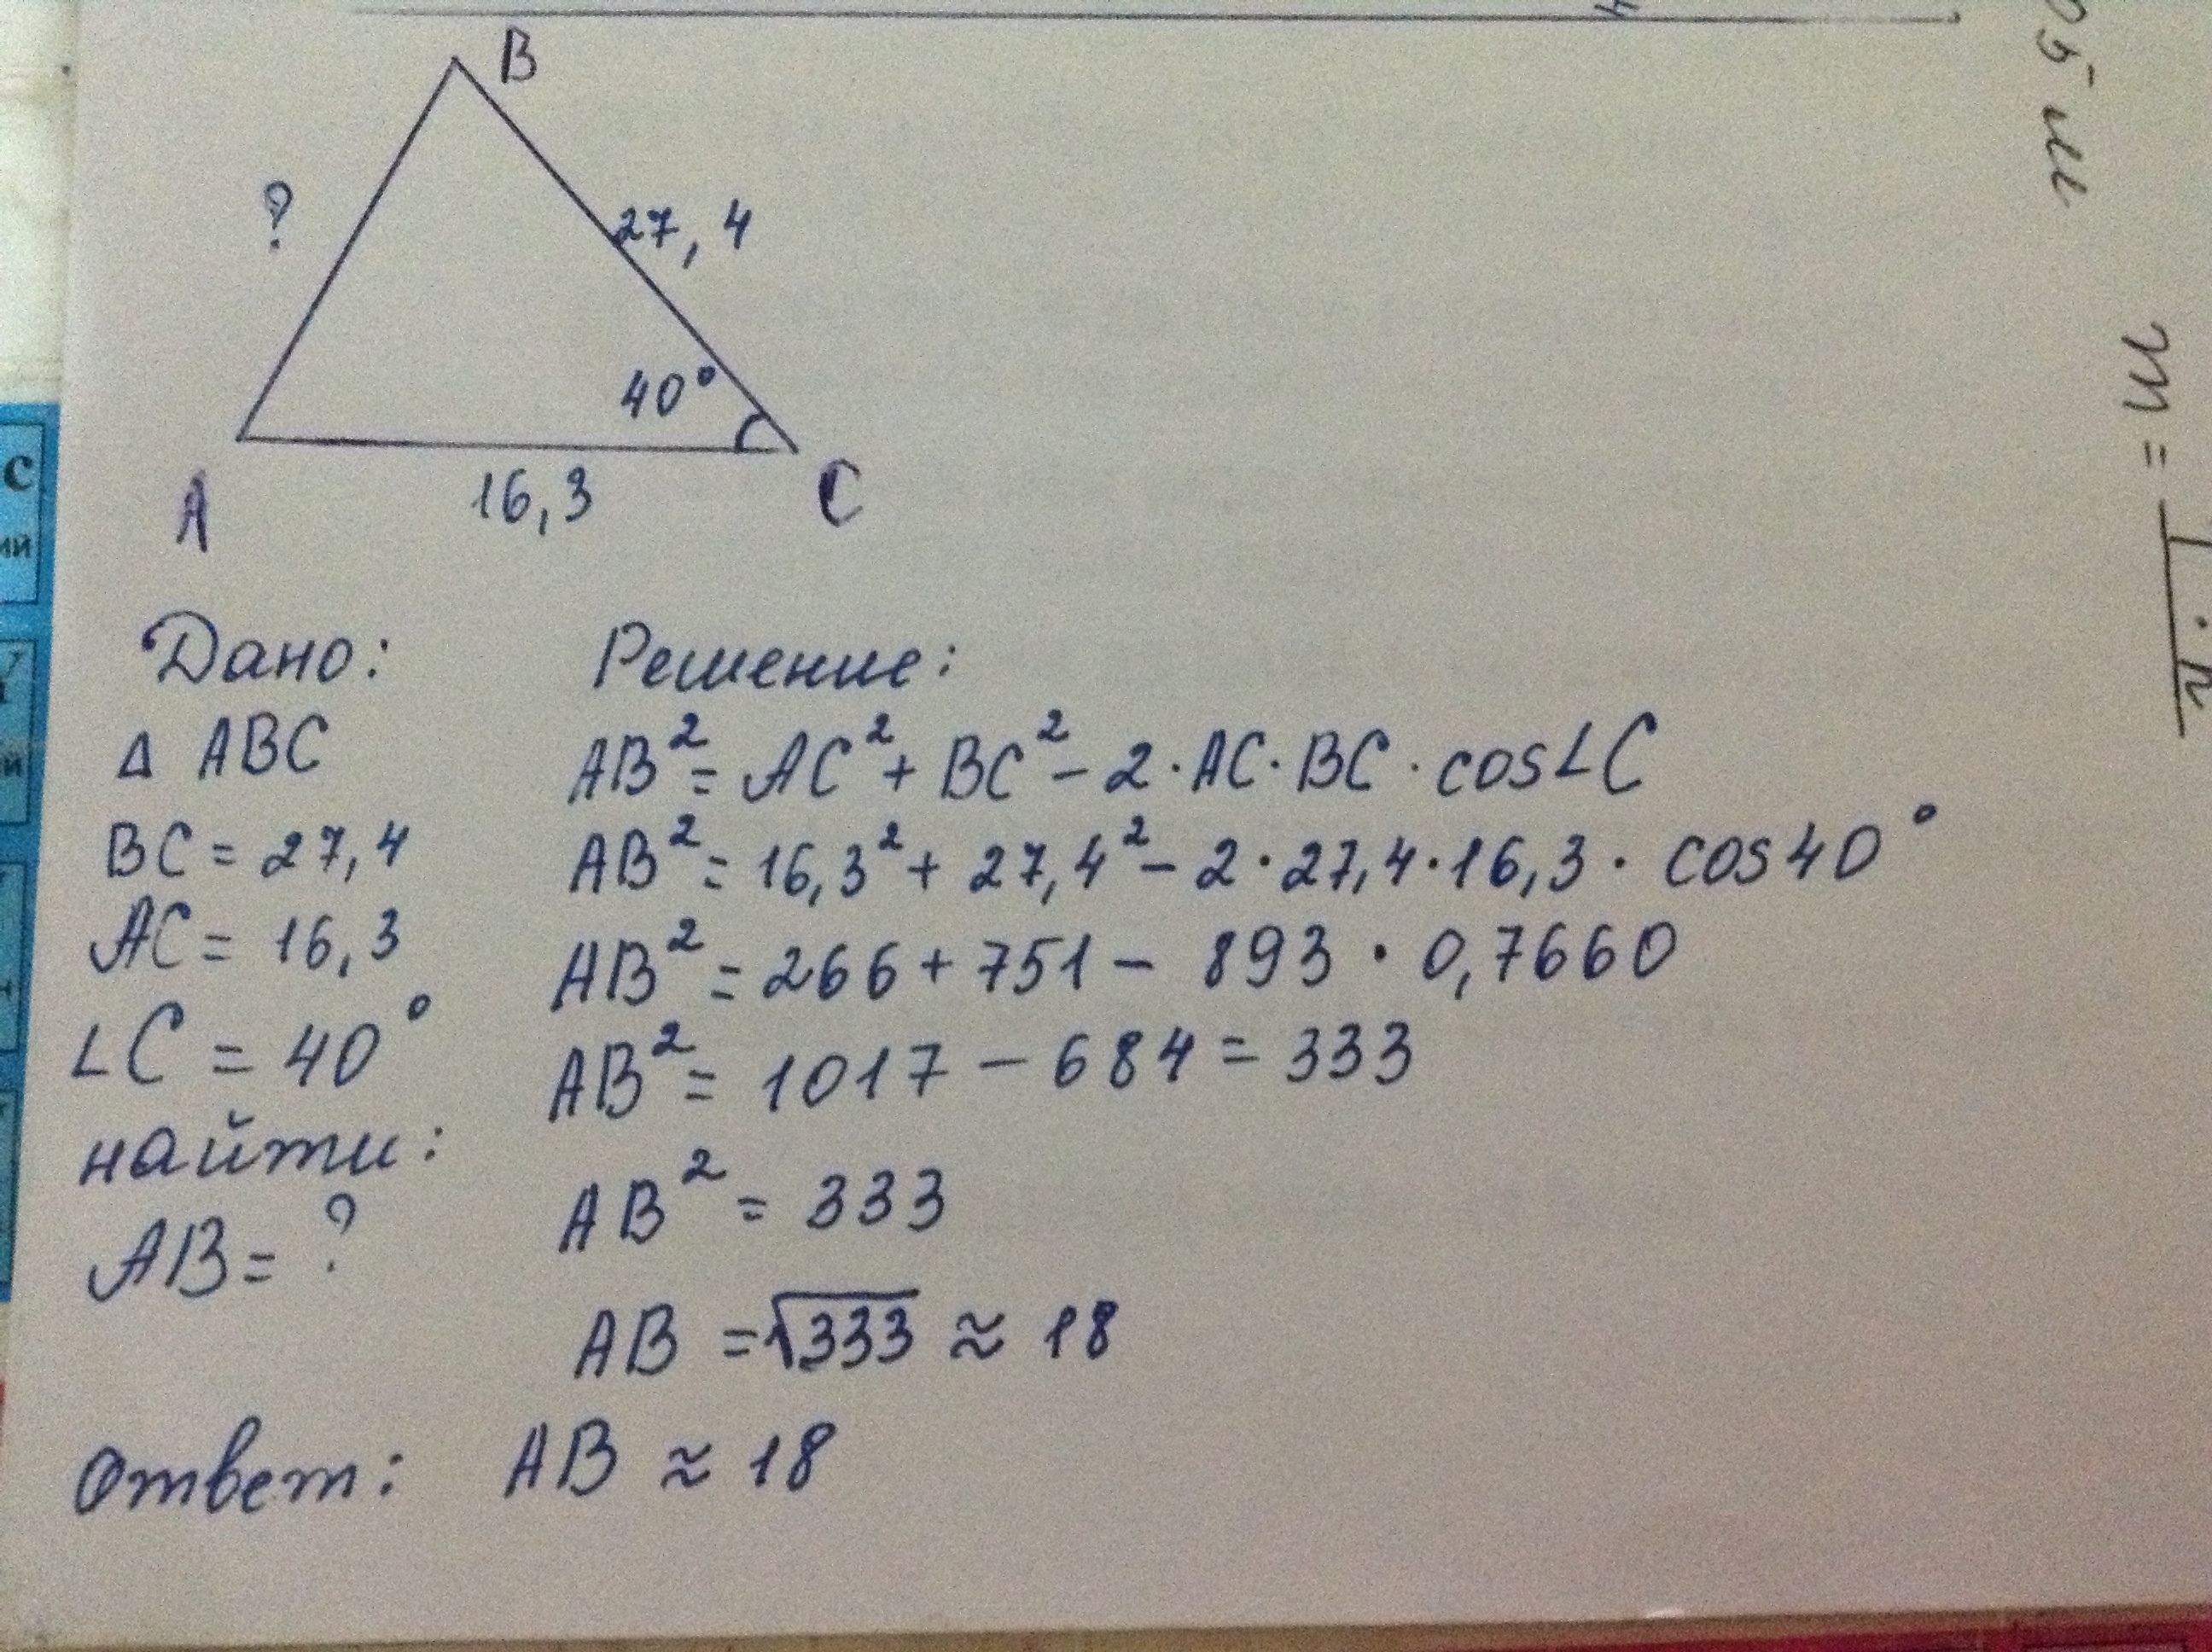 B
?
27,4
40°
A
16,3
C
Дано:
Δ ABC
BC = 27,4
AC = 16,3
∠C = 40°
найти:
AB = ?
Решение:
AB² = AC² + BC² - 2 · AC · BC · cos∠C
AB² = 16,3² + 27,4² - 2 · 27,4 · 16,3 · cos40°
AB² = 266 + 751 - 893 · 0,7660
AB² = 1017 - 684 = 333
AB² = 333
AB = √333 ≈ 18
Ответ: AB ≈ 18
m =